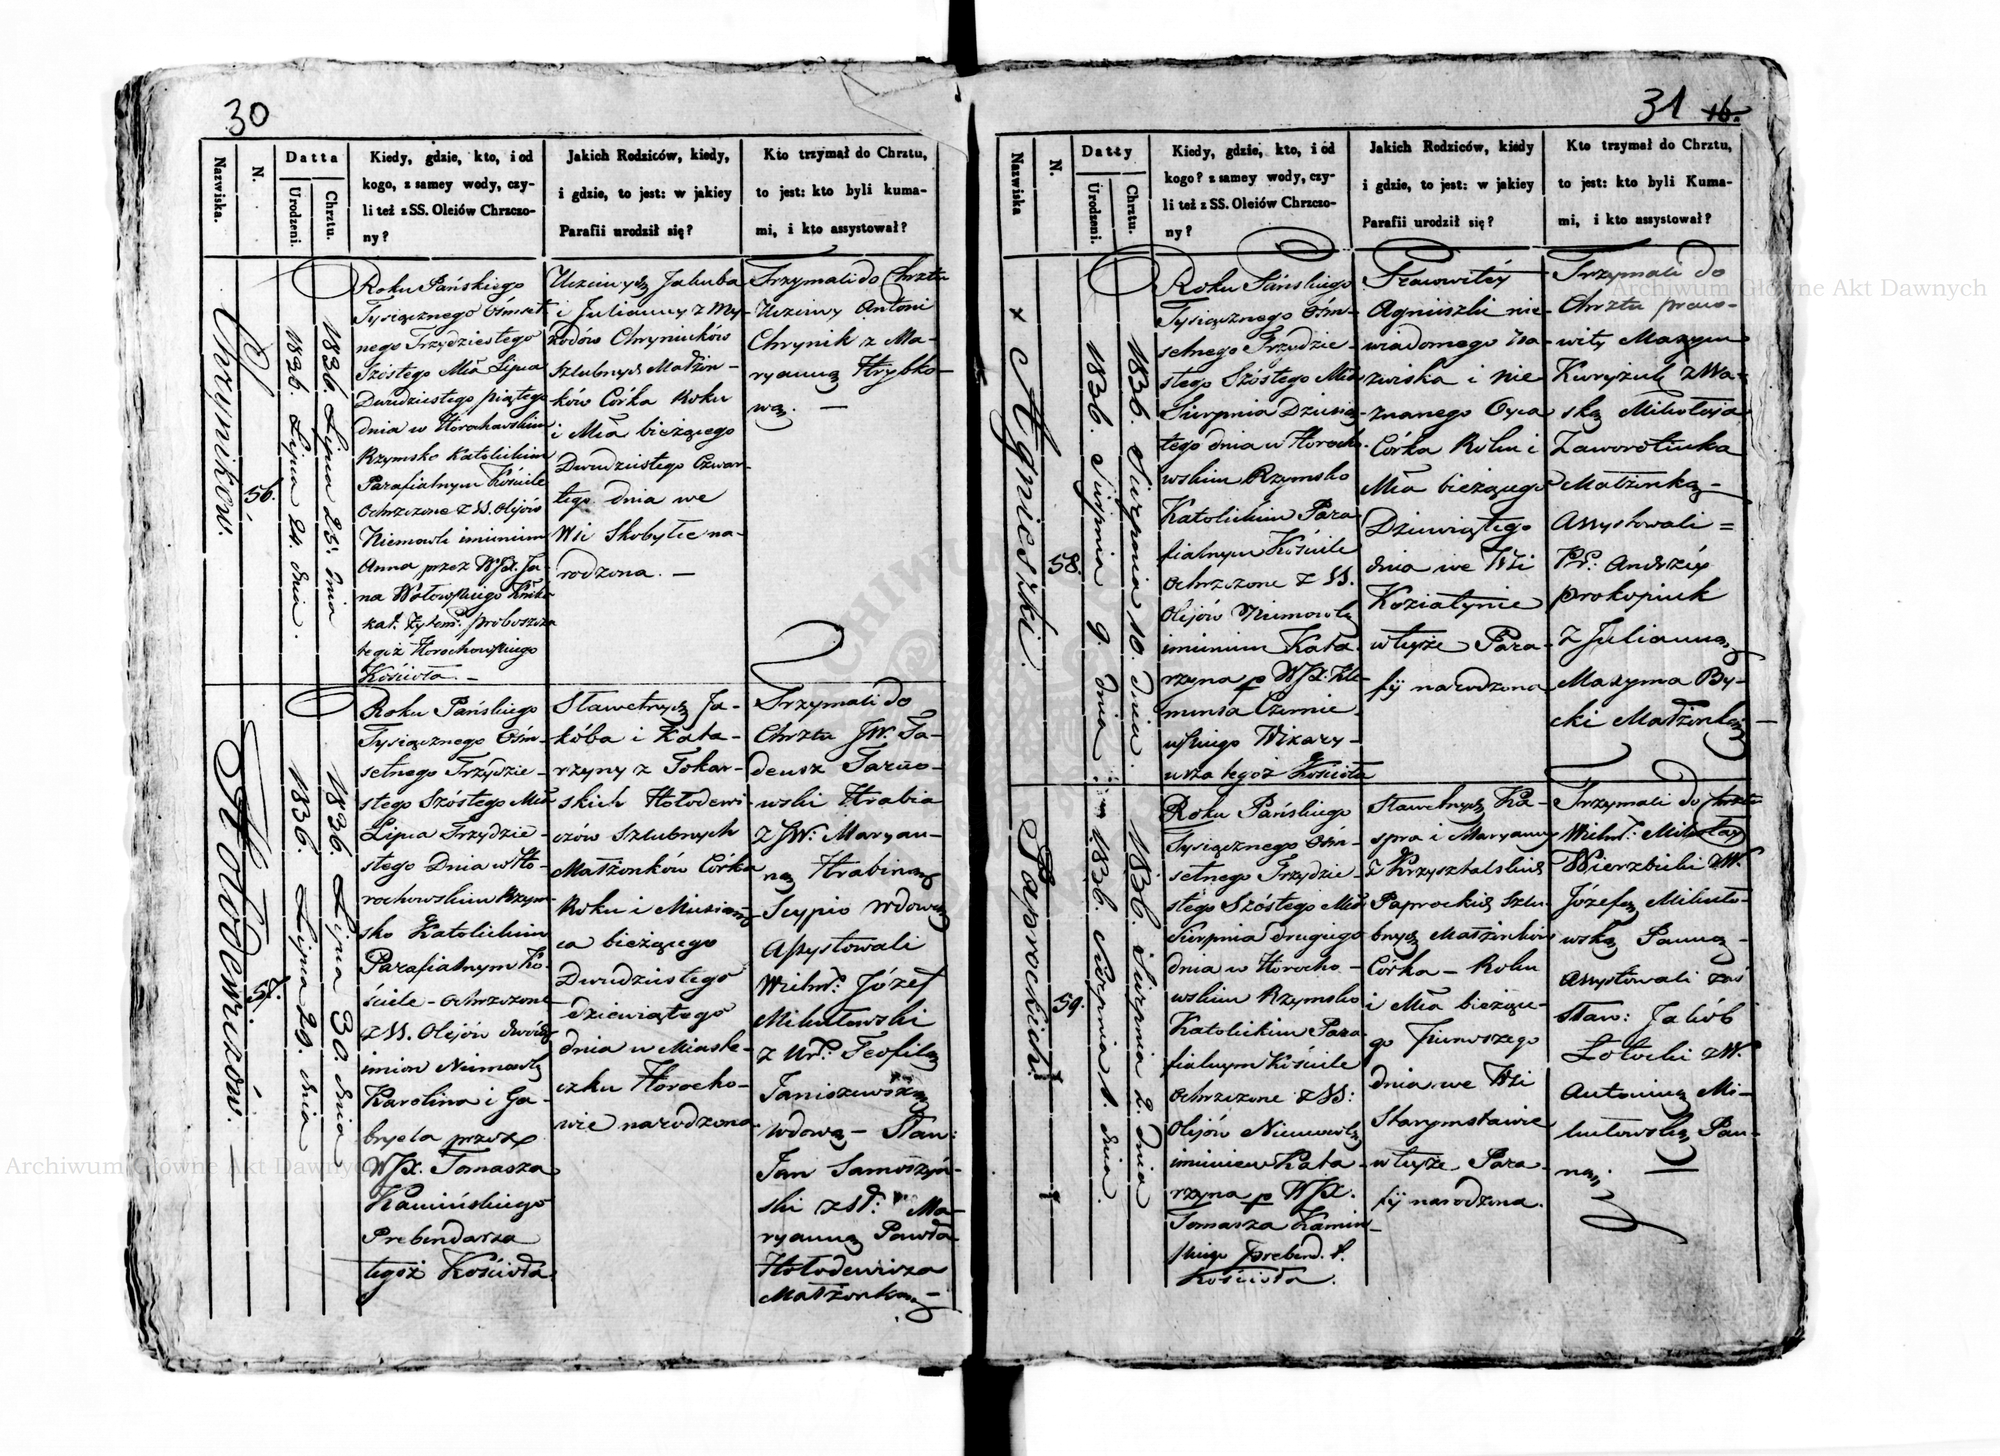 30
Nazwiska.
N.
Datta
Urodzeni.
Chrztu.
Kiedy, gdzie, kto, i od
kogo, z samey wody, czy-
li też z SS. Oleiów Chrzczo-
ny?
Jakich Rodziców, kiedy,
i gdzie, to jest: w jakiey
Parafii urodził się?
Kto trzymał do Chrztu,
to jest: kto byli kuma-
mi, i kto assystował?
Chryników.
56.
1836. Lipca 24. dnia.
1836. Lipca 25. dnia
Roku Pańskiego
Tysiącznego Ośmset
nego Trzydziestego
Szóstego Mca Lipca
Dwudziestego piątego
dnia w Horochowskim
Rzymsko Katolickim
Parafialnym Kościele
Ochrzczone z SS. Olejów
Niemowle imieniem
Anna przez WJX. Ja-
na Wołowskiego
kat. Żytom. proboszcza
tegoż Horochowskiego
Kościoła. -
Uczciwych Jakuba
i Julianny z
rodów Chryniuków
szlubnych Małżon-
ków Córka Roku
i Mca bieżącego
Dwudziestego Czwar-
tego dnia we
Wsi Skobyłce na-
rodzona. —
Trzymali do Chrztu
Uczciwy Antoni
Chrynik z Ma-
ryanną Hrybko-
wą. —
Hołodewiczów. —
57.
1836. Lipca 29. dnia
1836. Lipca 30. dnia
Roku Pańskiego
Tysiącznego Ośm-
setnego Trzydzie-
stego Szóstego Mca
Lipca Trzydzie-
stego Dnia w Ho-
rochowskim Rzym-
sko Katolickim
Parafialnym Ko-
ściele - ochrzczone
z SS. Olejów dwóch
imion Niemowle
Karolina i Ga-
bryela przez
WJX. Tomasza
Kamińskiego
Prebendarza
tegoż Kościoła
Sławetnych Ja-
kóba i Kata-
rzyny z Tokar-
skich Hołodewi-
czów Szlubnych
Małżonków Córka
Roku i Miesią-
ca bieżącego
Dwudziestego
dziewiątego
dnia w Miaste-
czku Horocho-
wie narodzona.
Trzymali do
Chrztu JW. Ta-
deusz Tarno-
wski Hrabia
z JW: Maryan-
ną Hrabiną
Scypio wdową
Assystowali
Wielm: Józef
Mikułowski
z Ur: Teofilą
Janiszewską
wdową - Sław:
Jan Samoszyń-
ski z Sł: Ma-
ryanną Pawła
Hołodewicza
Małżonką. —
31 16.
Nazwiska
N.
Datty
Urodzeni.
Chrztu.
Kiedy, gdzie, kto, i od
kogo? z samey wody, czy-
li też z SS. Oleiów Chrzczo-
ny?
Jakich Rodziców, kiedy
i gdzie, to jest: w jakiey
Parafii urodził się?
Kto trzymał do Chrztu,
to jest: kto byli Kuma-
mi, i kto assystował?
× Agnieszki.
58.
1836. Sierpnia 9. dnia.
1836. Sierpnia 10. dnia.
Roku Pańskiego
Tysiącznego Ośm-
setnego Trzydzie-
stego Szóstego Mca
Sierpnia Dziesią-
tego dnia w Horocho-
wskim Rzymsko
Katolickim Para-
fialnym Kościele
ochrzczone z SS.
Olejów Niemowle
imieniem Kata-
rzyna p WJX. Kle-
mensa Czernie-
wskiego Wikary-
usza tegoż Kościoła
Pracowitéy
Agnieszki nie-
wiadomego Na-
zwiska i nie
znanego Oyca
Córka Roku i
Mca bieżącego
Dziewiątego
dnia we Wsi
Koziatynie
w teyże Para-
fij narodzona
Trzymali do
Chrztu praco-
wity Maxym
Kuryzuk z Wa-
ską Mikołaja
Zaworotiuka
Małżonką -
Assystowali =
Pr: Andrzéy
Prokopiuk
z Julianną
Maxyma By-
cki Małżonką —
Paprockich.
59.
1836. Sierpnia 1. dnia.
1836. Sierpnia 2. dnia
Roku Pańskiego
Tysiącznego Ośm-
setnego Trzydzie-
stego Szóstego Mca
Sierpnia drugiego
dnia w Horocho-
wskim Rzymsko
Katolickim Para-
fialnym Kościele
ochrzczone z SS:
Olejów Niemowle
imieniem Kata-
rzyna p WJX.
Tomasza Kamiń-
skiego prebend. t.
Kościoła.
Sławetnych Ka-
spra i Maryanny
z Krzysztalskich
Paprockich Szlu-
bnych Małżonków
Córka - Roku
i Mca bieżące-
go Pierwszego
dnia we Wsi
Starymstawie
w teyże Para-
fij narodzona.
Trzymali do Chrztu
Wielm: Mikołay
Wierzbicki z W.
Józefą Mikuło-
wską Panną -
Assystowali zaś
Sław: Jakób
Łotocki z W.
Antoniną Mi-
kułowską Pan-
ną. —
Archiwum Główne Akt Dawnych
Archiwum Główne Akt Dawnych